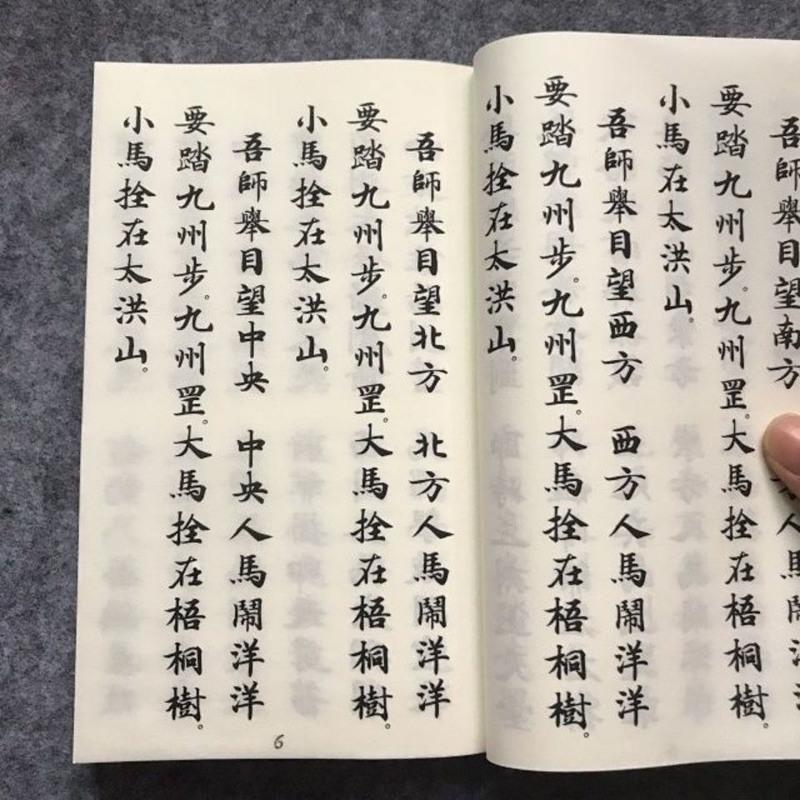 吾師舉目望南方
要踏九州步。九州罡。大馬拴在梧桐樹
小馬在太洪山。
吾師舉目望西方 西方人馬鬧洋洋
要踏九州步。九州罡。大馬拴在梧桐樹。
小馬拴在太洪山。
吾師舉目望北方 北方人馬鬧洋洋
要踏九州步。九州罡。大馬拴在梧桐樹。
小馬拴在太洪山。
吾師舉目望中央 中央人馬鬧洋洋
要踏九州步。九州罡。大馬拴在梧桐樹。
小馬拴在太洪山。
6